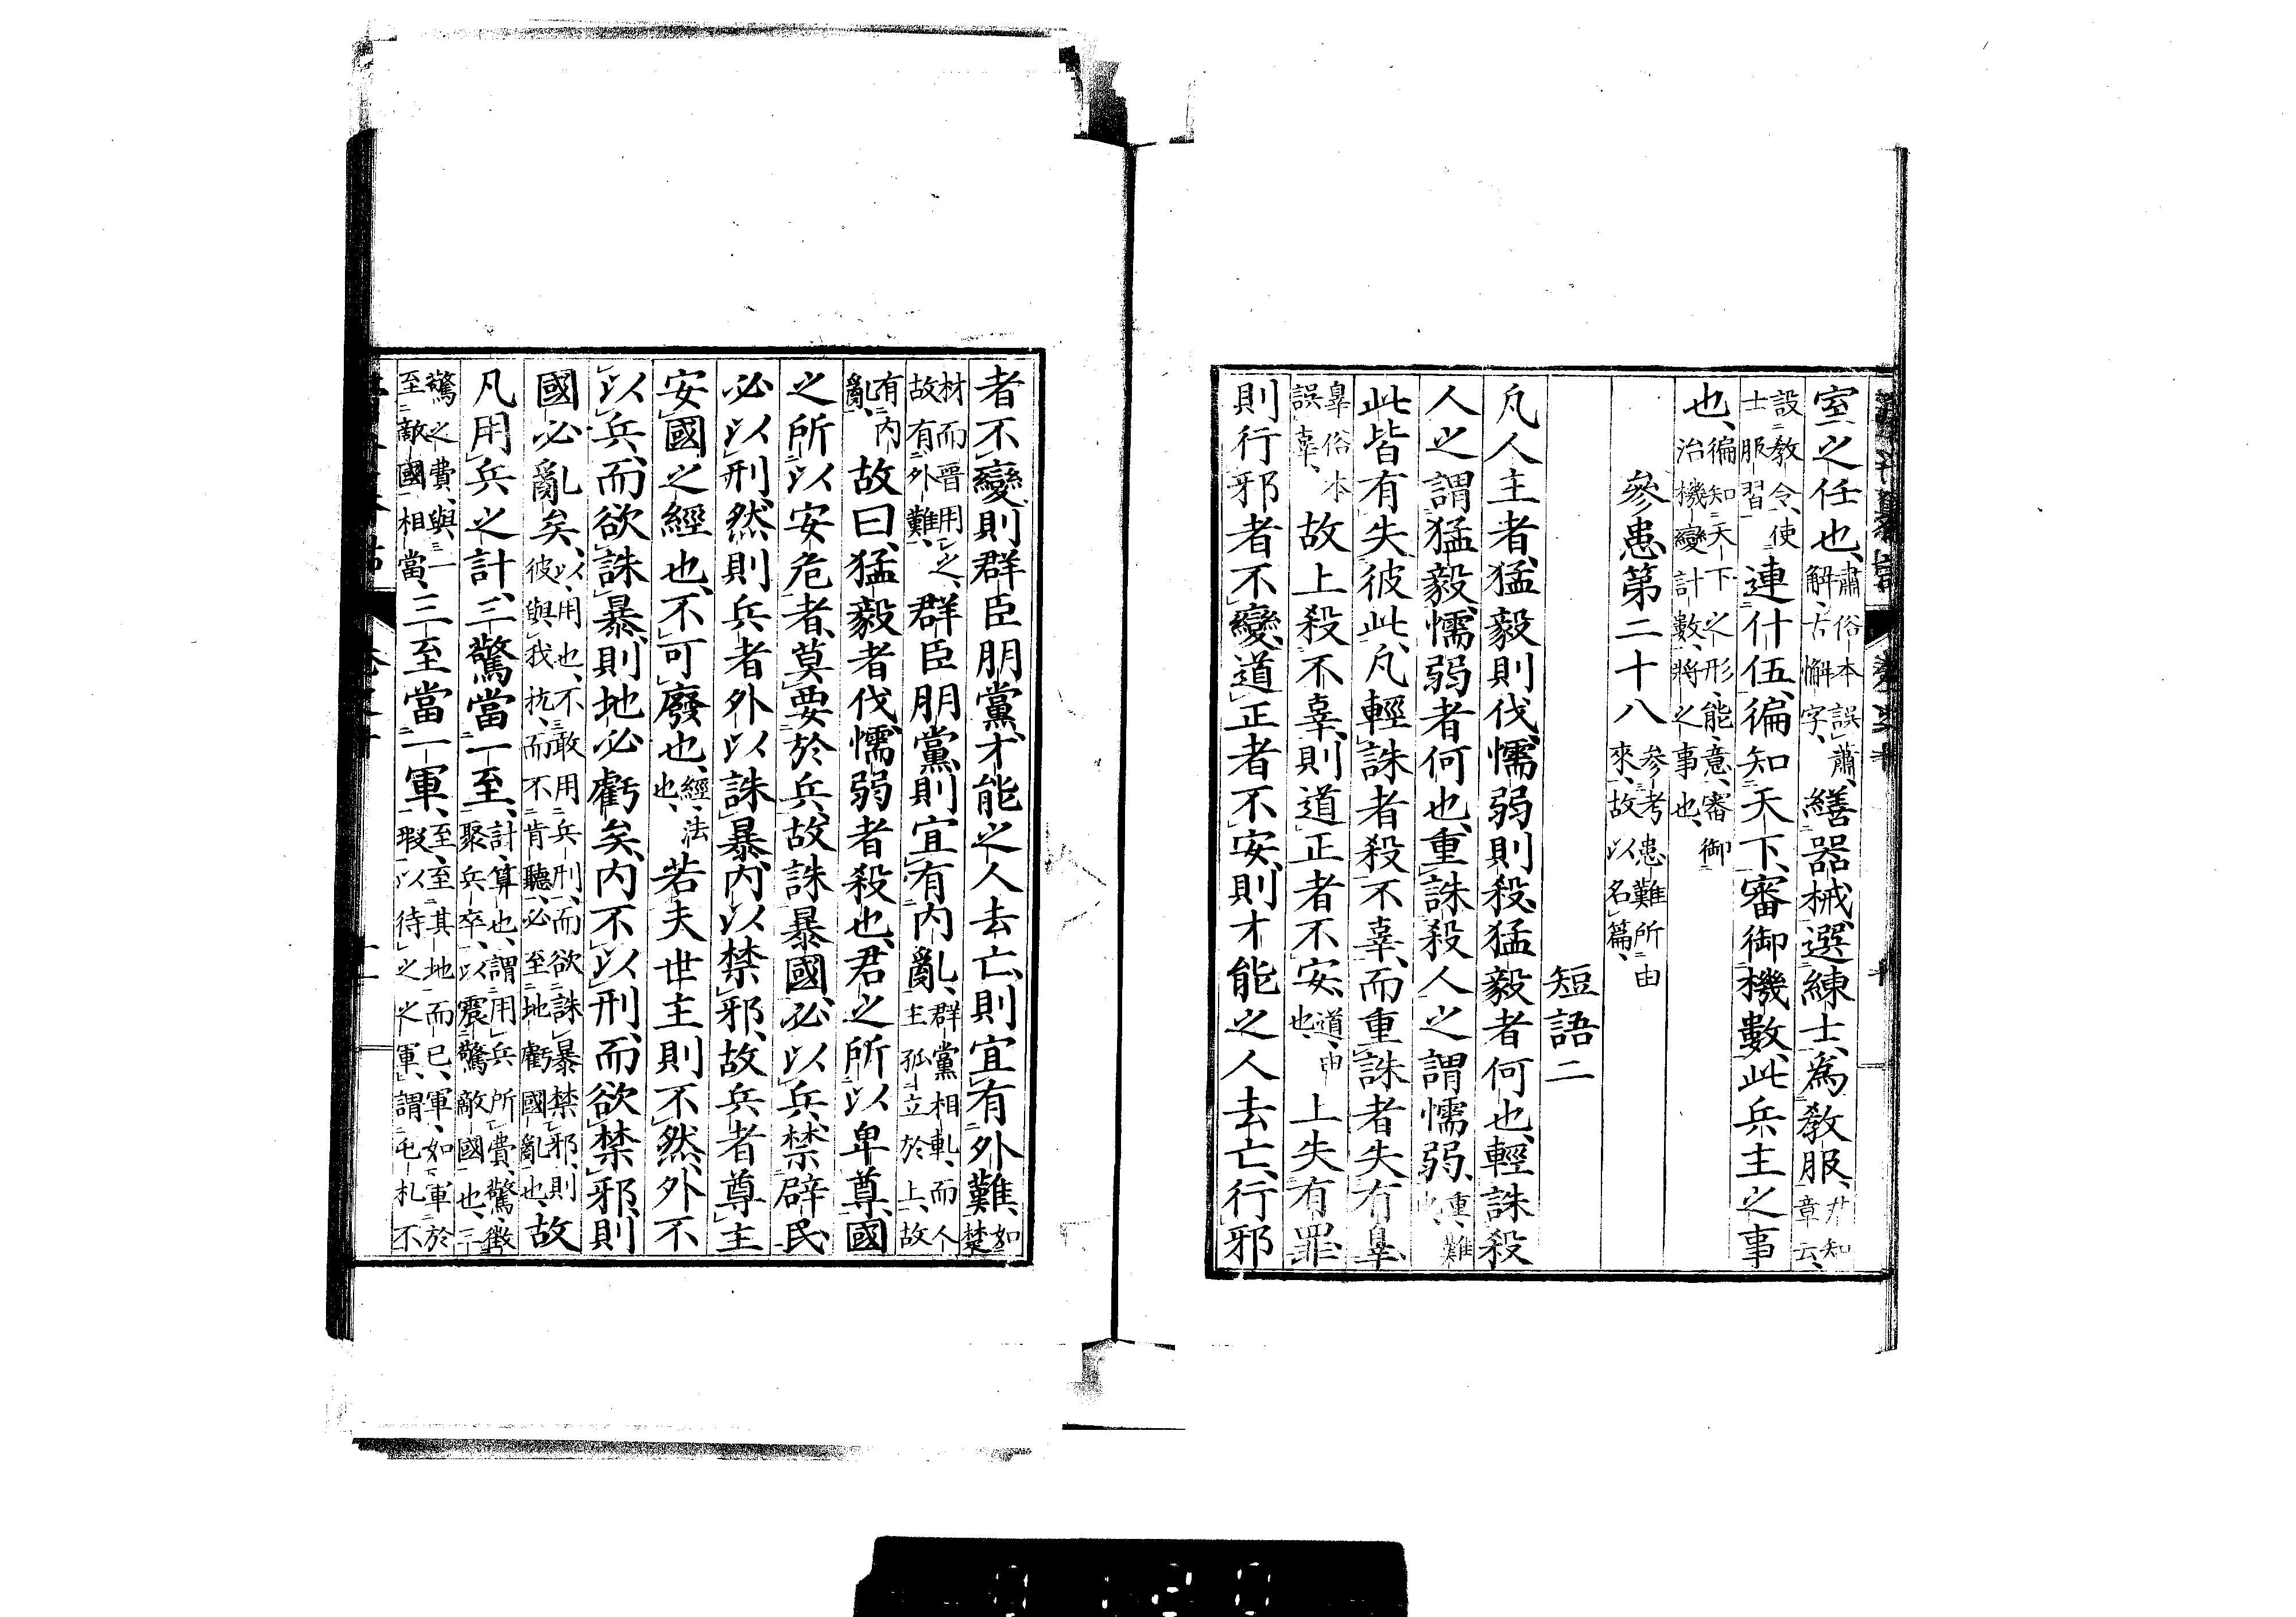 室之任也、肅俗本誤蕭、解古懈字、繕器械、選練士、為教服、尹知章云、
設教令、使士服習連什伍、徧知天下、審御機數、此兵主之事
也、徧知天下之形能意、審御治機變計數、將之事也、
參患第二十八參考患難所由來、故以名篇、
短語二
凡人主者、猛毅則伐、懦弱則殺、猛毅者何也、輕誅殺
人之謂猛毅、懦弱者何也、重誅殺人之謂懦弱、重、難也、
此皆有失彼此、凡輕誅者殺不辜、而重誅者失有辠、
辠俗本誤辜、故上殺不辜、則道正者不安、道、由也、上失有罪、
則行邪者不變、道正者不安、則才能之人去亡、行邪
者不變、則群臣朋黨、才能之人去亡、則宜有外難、如楚
材而晋用之、故有外難、群臣朋黨、則宜有内亂、群黨相軋、而人主孤立於上、故
有内亂、故曰、猛毅者伐、懦弱者殺也、君之所以卑尊、國
之所以安危者、莫要於兵、故誅暴國必以兵、禁辟民
必以刑、然則兵者外以誅暴、内以禁邪、故兵者尊主
安國之經也、不可廢也、經、法也、若夫世主則不然、外不
以兵、而欲誅暴、則地必虧矣、内不以刑、而欲禁邪、則
國必亂矣、以、用也、不敢用兵刑、而欲誅暴禁邪、則彼與我抗、而不肯聽、必至地虧國亂也、故
凡用兵之計、三驚當一至、計、算也、謂用兵所費、驚、徵聚兵卒、以震驚敵國也、三
驚之費、與一至敵國相當、三至當一軍、至、至其地而已、軍、如軍於瑕以待之之軍、謂屯札不